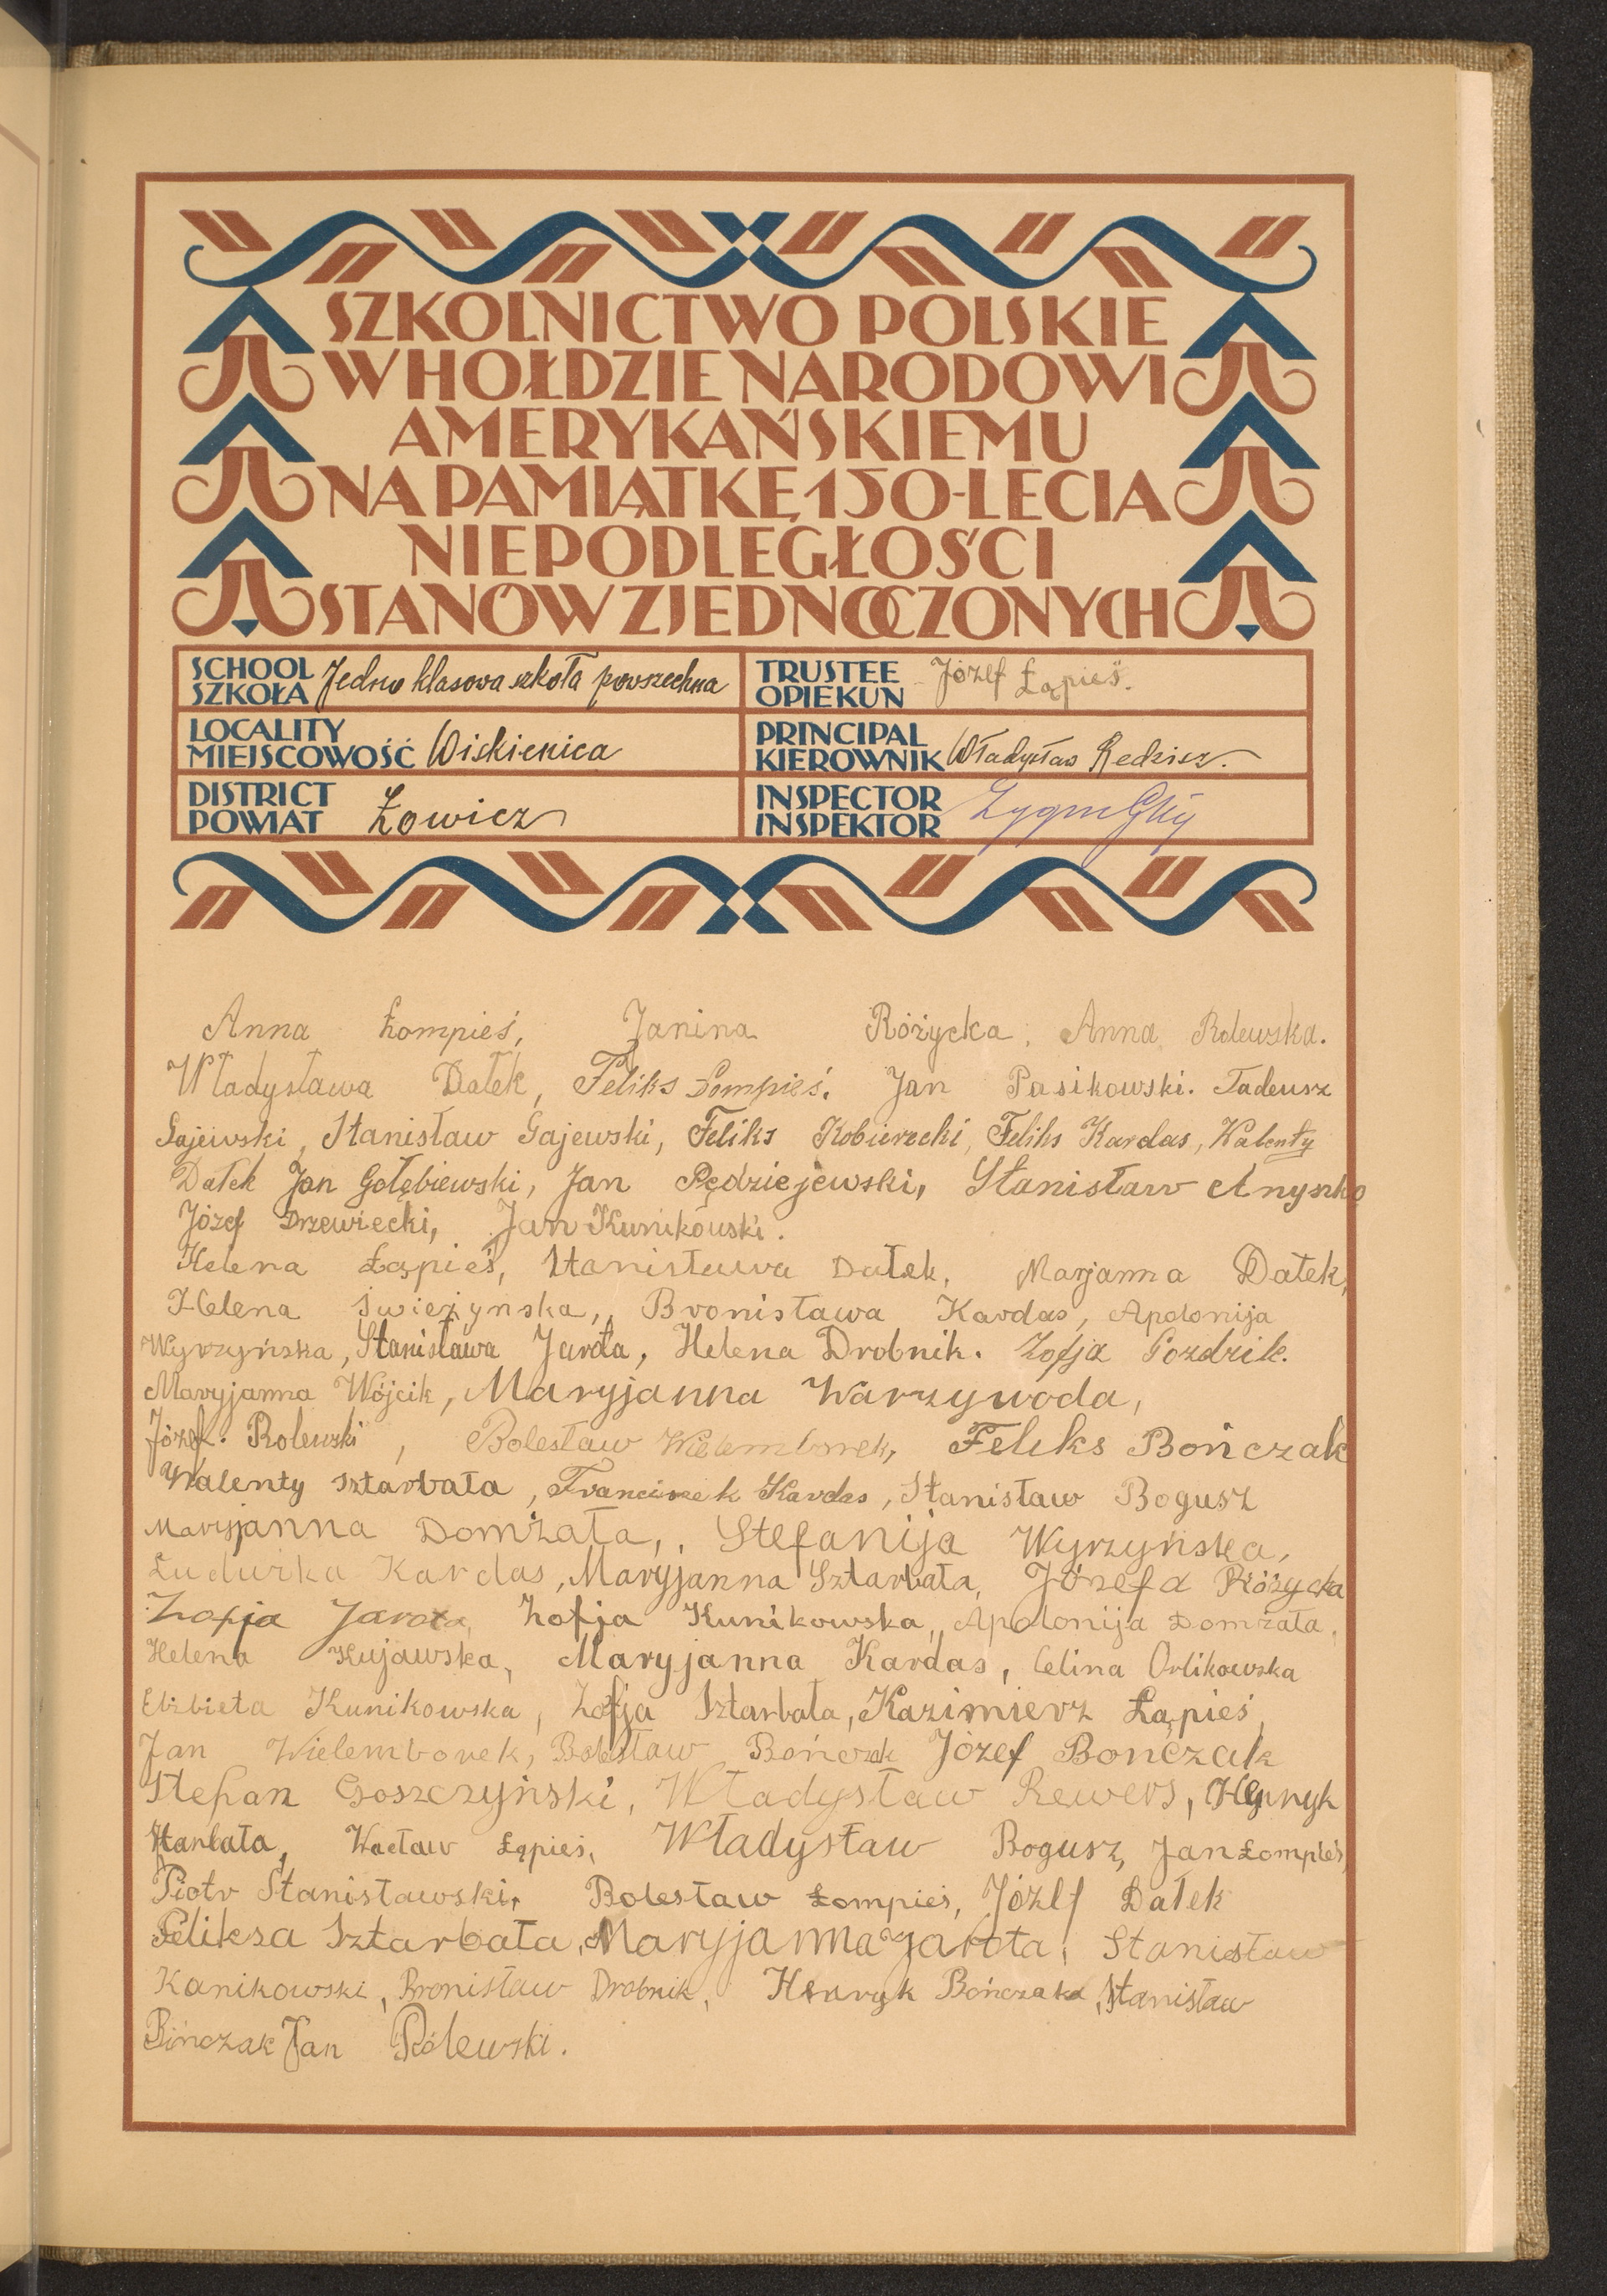 SZKOLNICTWO POLSKIE
W HOŁDZIE NARODOWI
AMERYKAŃSKIEMU
NA PAMIĄTKĘ 150-LECIA
NIEPODLEGŁOŚCI
STANÓW ZJEDNOCZONYCH
SCHOOL
SZKOŁA Jedno klasowa szkoła powszechna
TRUSTEE
OPIEKUN Józef Łąpieś.
LOCALITY
MIEJSCOWOŚĆ Wiskienica
PRINCIPAL
KIEROWNIK Władysław Redzisz.
DISTRICT
POWIAT Łowicz
INSPECTOR
INSPEKTOR
Anna Łompieś, Janina Różycka, Anna Rolewska.
Władysława Dałek, Feliks Łompieś. Jan Pasikowski. Tadeusz
Gajewski, Stanisław Gajewski, Feliks Kobierecki, Feliks Kardas, Walenty
Dałek Jan Gołębiewski, Jan Pędziejewski, Stanisław Anyszko
Józef Drzewiecki, Jan Kunikowski.
Helena Łąpieś, Stanisława Dałek, Marjanna Dałek,
Helena Świeżyńska, Bronisława Kardas, Apolonija
Wyrzyńska, Stanisława Jarota, Helena Drobnik. Zofja Gozdzik.
Maryjanna Wójcik, Maryjanna Warzywoda,
Józef. Rolewski, Bolesław Wielemborek, Feliks Bończak
Walenty Sztarbała, Franciszek Kardas, Stanisław Bogusz
Maryjanna Domżała, Stefanija Wyrzyńska,
Ludwika Kardas, Maryjanna Sztarbała, Józefa Różycka
Zofja Jarota, Zofja Kunikowska, Apolonija Domżała,
Helena Kujawska, Maryjanna Kardas, Celina Orlikowska
Elżbieta Kunikowska, Zofja Sztarbała, Kazimierz Łąpieś,
Jan Wielemborek, Bolesław Bończak Józef Bończak
Stefan Goszczyński, Władysław Rewers, Henryk
Harbała, Wacław Łąpieś, Władysław Bogusz, Jan Łompieś,
Piotr Stanisławski, Bolesław Łompieś, Józef Dałek
Feliksa Sztarbała, Maryjanna Jarota, Stanisław
Kanikowski, Bronisław Drobnik, Henryk Bończak, Stanisław
Bińczak Jan Rólewski.